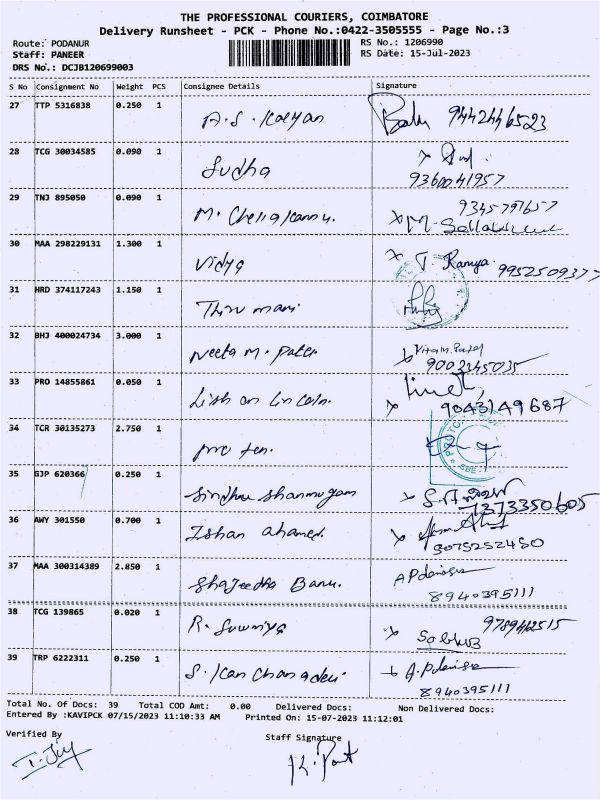 THE PROFESSIONAL COURIERS, COIMBATORE
Delivery Runsheet - PCK - Phone No.:0422-3505555 - Page No.:3
Route: PODANUR RS No.: 1206990
Staff: PANEER RS Date: 15-Jul-2023
DRS No.: DCJB120699003
S No Consignment No Weight PCS Consignee Details Signature
27 TTP 5316838 0.250 1 A.S. Kalyan Balu 9442446523
28 TCG 30034585 0.090 1 Sudha
9360041957
29 TNJ 895050 0.090 1 M.
30 MAA 298229131 1.300 1 Vidya T Ramya 9952509377
31 HRD 374117243 1.150 1 Thiru mani
32 BHJ 400024734 3.000 1 Neeta M. Patel
9003345035
33 PRO 14855861 0.050 1 Lincoln.
9043149687
34 TCR 30135273 2.750 1 pro ten.
35 GJP 620366 0.250 1 Sindhu Shanmugam
7373350605
36 AWY 301550 0.700 1 Ishan ahamed.
37 MAA 300314389 2.850 1 Shajeedha Banu.
8940395111
38 TCG 139865 0.020 1 R.
39 TRP 6222311 0.250 1 S.
8940395111
Total No. Of Docs: 39 Total COD Amt: 0.00 Delivered Docs: Non Delivered Docs:
Entered By :KAVIPCK 07/15/2023 11:10:33 AM Printed On: 15-07-2023 11:12:01
Verified By Staff Signature